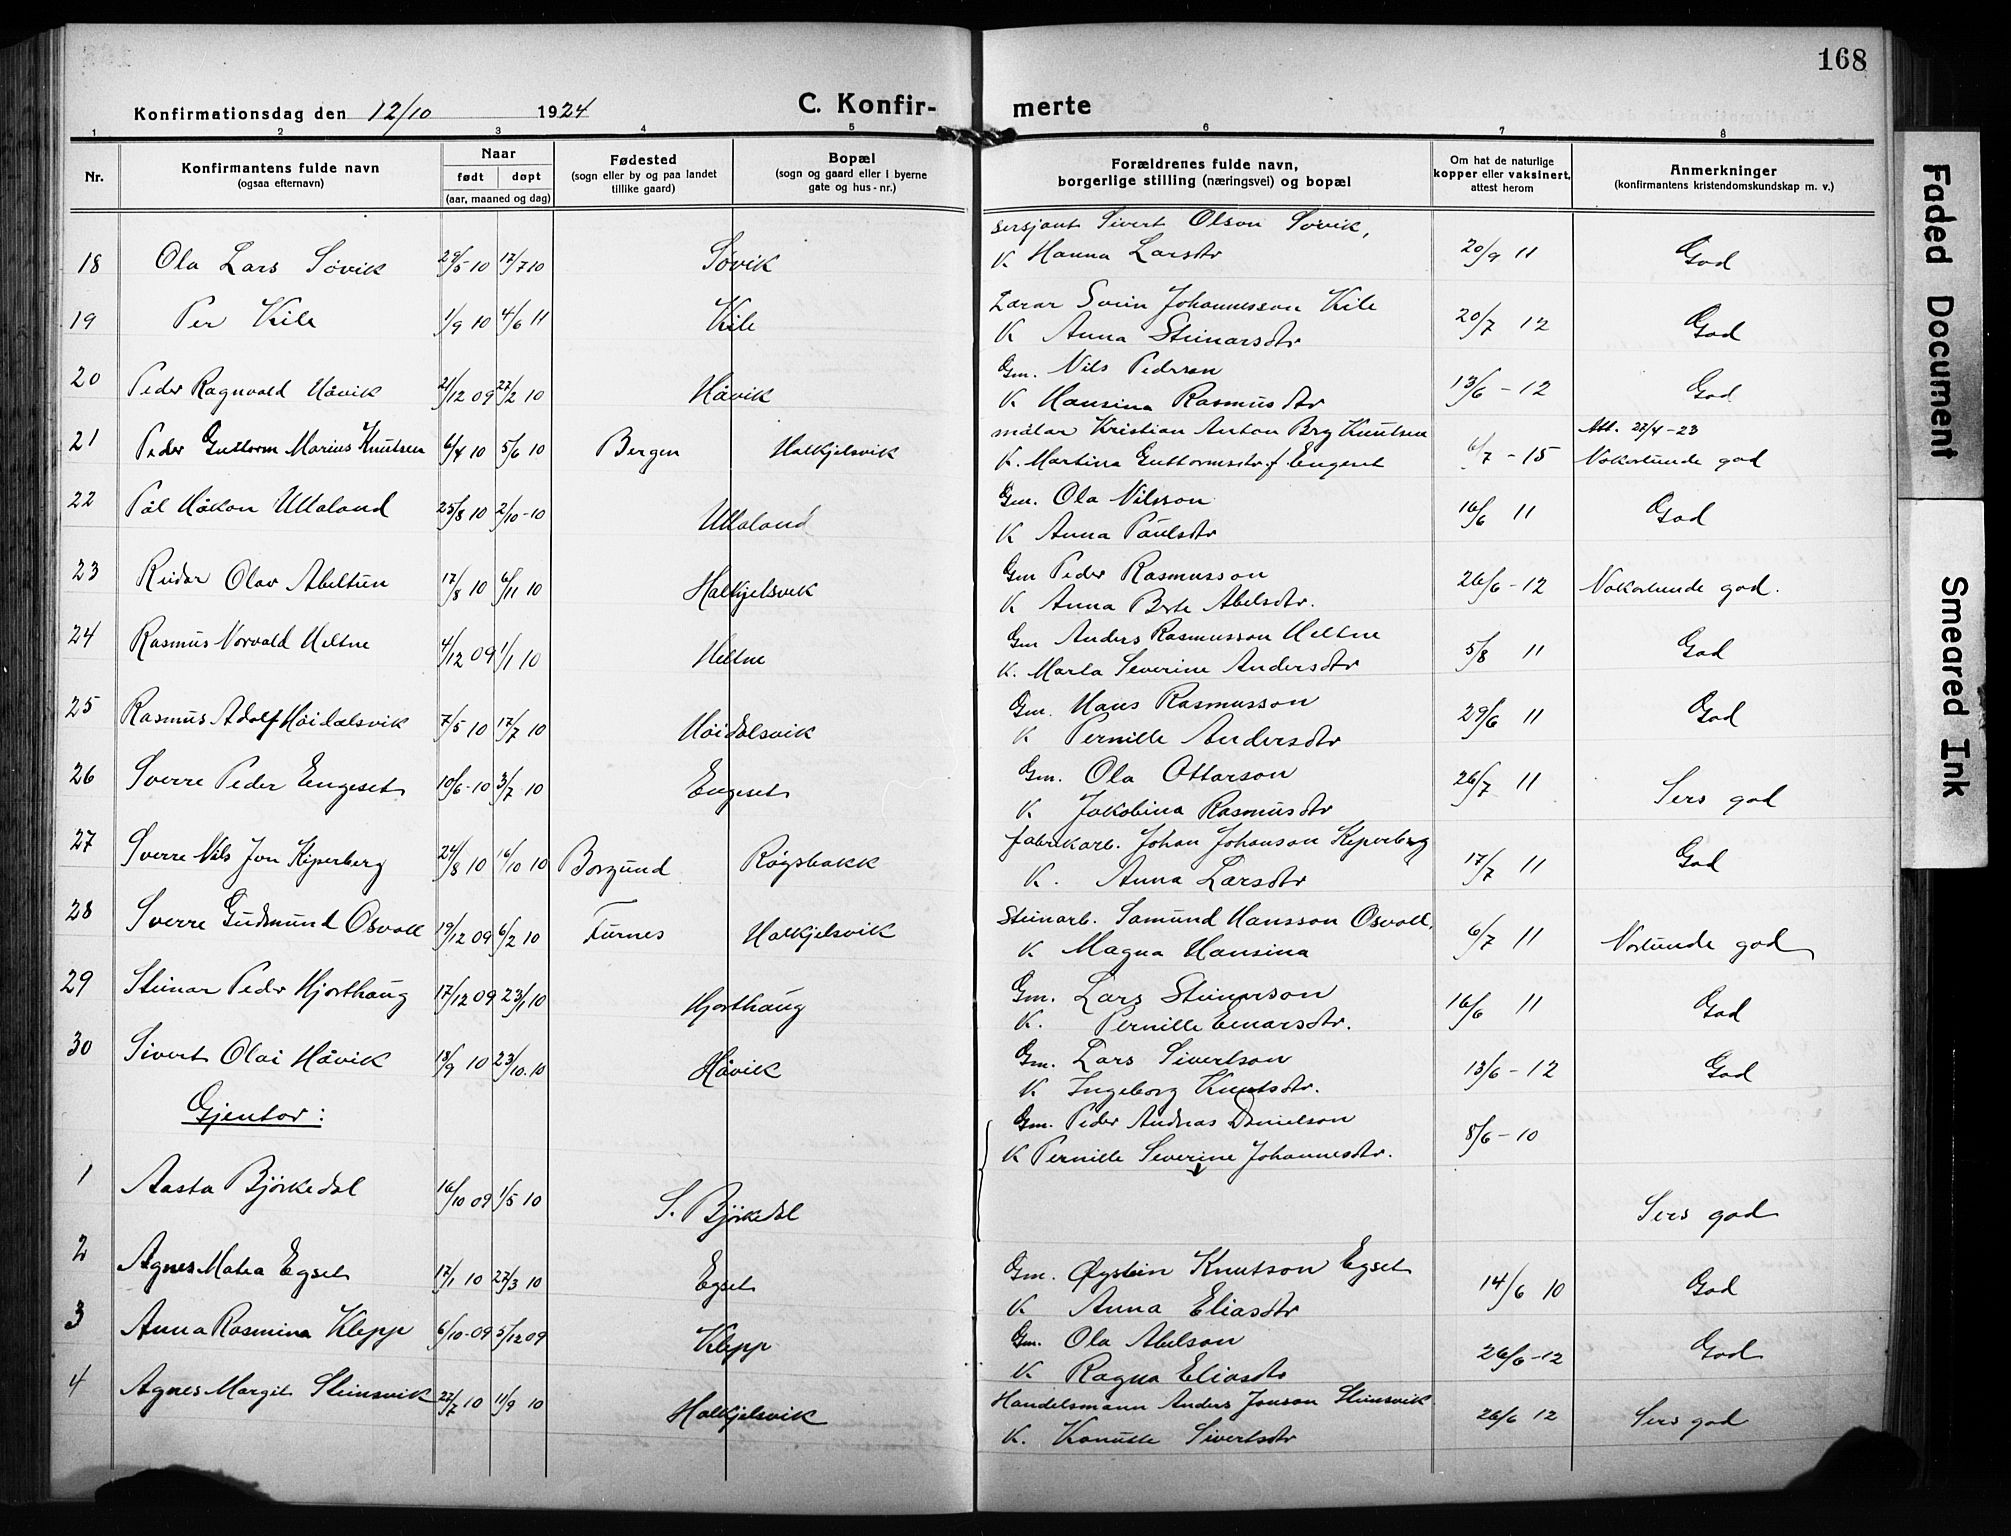 168
Konfirmationsdag den 12/10 1924
C. Konfir- merte
1 2 3 4 5 6 7 8
Nr.
Konfirmantens fulde navn
(ogsaa efternavn)
Naar
født døpt
(aar, maaned og dag)
Fødested
(sogn eller by og paa landet
tillike gaard)
Bopæl
(sogn og gaard eller i byerne
gate og hus-nr.)
Forældrenes fulde navn,
borgerlige stilling (næringsvei) og bopæl
Om hat de naturlige
kopper eller vaksinert,
attest herom
Anmerkninger
(konfirmantens kristendomskundskap m. v.)
sersjant Sivert Olson Søvik,
18 Ola Lars Søvik 29/5 10 17/7 10 Søvik K Hanna Larsdtr 20/9 11 God
Lærar Svein Johannesson Kile
19 Per Kile 1/9 10 4/6 11 Kile K Anna Steinarsdtr 20/7 12 God
Gm. Nils Pederson
20 Peder Ragnvald Håvik 21/12 09 27/2 10 Håvik K Hansina Rasmusdtr 13/6 - 12 God
målar Kristian Anton Bry Knutsen Att. 27/4-23
21 Peder Guttorm Marius Knutsen 6/4 10 5/6 10 Bergen Halkjelsvik K. Martina Guttormsdtr. f. Engeset 6/7 - 15 Nokorlunde god
Gm. Ola Nilsson
22 Pål Håkon Ullaland 25/8 10 2/10-10 Ullaland K Anna Paulsdtr 16/6 11 God
Gm Peder Rasmusson
23 Reidar Olav Abeltun 17/8 10 6/11 10 Halkjelsvik K Anna Brte Abelsdtr. 26/6-12 Nokorlunde god.
Gm Anders Rasmusson Heltne
24 Rasmus Norvald Heltne 4/12 09 1/1 10 Heltne K. Marta Severine Andersdtr 5/8 11 God
Gm. Hans Rasmusson
25 Rasmus Adolf Høidalsvik 7/5 10 17/7 10 Høidalsvik K Pernille Andersdtr 29/6 11 God
Gm. Ola Ottarson
26 Sverre Peder Engeset 10/6-10 3/7 10 Engeset K Jakobina Rasmusdtr 26/7 11 Sers god
fabrikarb. Johan Johanson Kiperberg
27 Sverre Nils Jon Kiperberg 24/8 10 16/10 10 Borgund Røgsbakk K. Anna Larsdtr 17/7 11 God
Steinarb. Samund Hansson Osvoll,
28 Sverre Gudmund Osvoll 19/12 09 6/2 10 Furnes Halkjelsvik K Magna Hansina 6/7 11 Norlunde god
Gm. Lars Steinarson
29 Steinar Peder Hjorthaug 17/12 09 23/1 10 Hjorthaug K. Pernille Einarsdtr. 16/6 11 God
Gm. Lars Sivertson
30 Sivert Olai Håvik 18/9 10 23/10.10 Håvik K Ingeborg Knutsdtr. 13/6 - 12 God
Gjentor:
Gm. Peder Andreas Danielson
K Pernille Severine Johannesdtr. 8/6 - 10
1 Aasta Bjørkedal 16/10 09 1/5 10 S. Bjørkedal Sers god
Gm. Øystein Knutson Egset
2 Agnes Matea Egset 17/1 10 27/3 10 Egset K Anna Eliasdtr 14/6 10 God
Gm. Ola Abelson
3 Anna Rasmina Klepp 6/10-09 5/12 09 Klepp K Ragna Eliasdtr 26/6-12 God
Handelsmann Anders Jonson Steinsvik
4 Agnes Margit Steinsvik 27/7 10 11/9 10 Halkjelsvik K. Sivertsdtr 26/6 12 Sers god
Faded Document
Smeared Ink